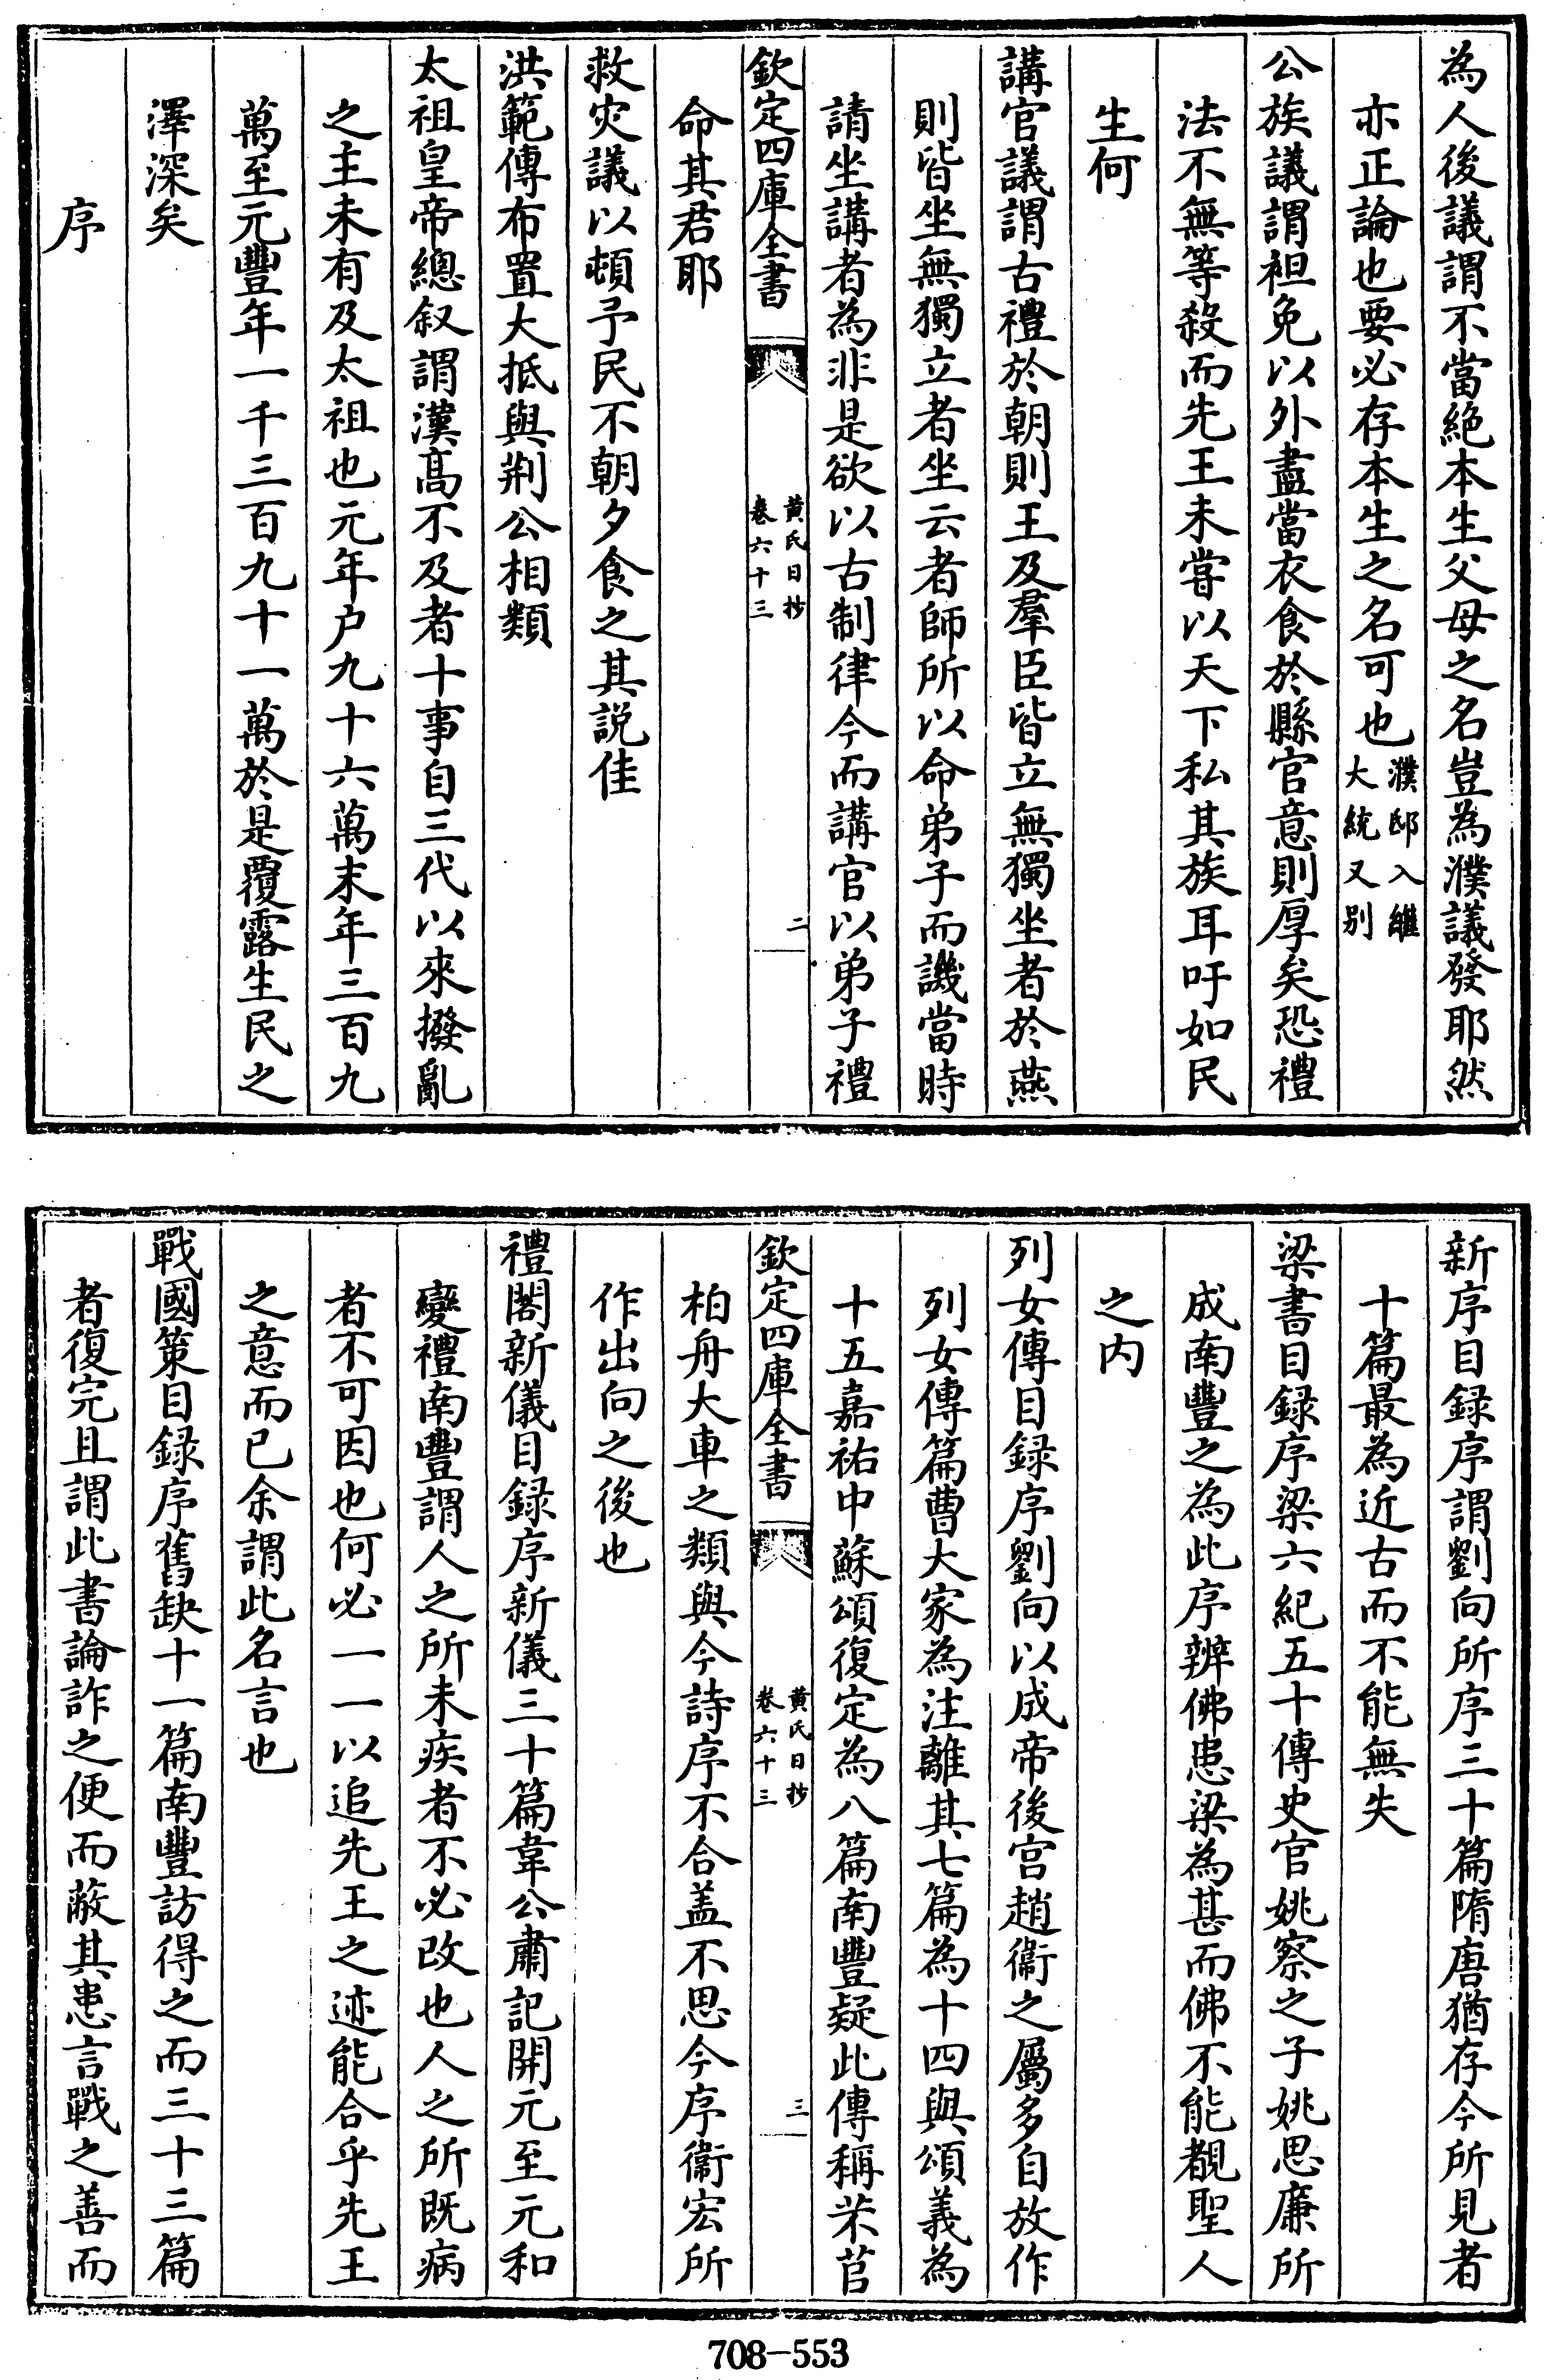 為人後議謂不當絶本生父母之名豈為濮議發耶然
亦正論也要必存本生之名可也濮邸入繼大統又别
公族議謂袒免以外盡當衣食於縣官意則厚矣恐禮
法不無等殺而先王未嘗以天下私其族耳吁如民
生何
講官議謂古禮於朝則王及羣臣皆立無獨坐者於燕
則皆坐無獨立者坐云者師所以命弟子而譏當時
請坐講者為非是欲以古制律今而講官以弟子禮
欽定四庫全書
黄氏日抄
卷六十三
二
命其君耶
救灾議以頓予民不朝夕食之其説佳
洪範傳布置大抵與荆公相類
太祖皇帝總叙謂漢髙不及者十事自三代以來撥亂
之主未有及太祖也元年户九十六萬末年三百九
萬至元豐年一千三百九十一萬於是覆露生民之
澤深矣
序
新序目録序謂劉向所序三十篇隋唐猶存今所見者
十篇最為近古而不能無失
梁書目録序梁六紀五十傳史官姚察之子姚思廉所
成南豐之為此序辨佛患梁為甚而佛不能覩聖人
之内
列女傳目録序劉向以成帝後宫趙衞之屬多自放作
列女傳篇曹大家為注離其七篇為十四與頌義為
十五嘉祐中蘇頌復定為八篇南豐疑此傳稱芣苢
欽定四庫全書
黄氏日抄
卷六十三
三
柏舟大車之類與今詩序不合盖不思今序衞宏所
作出向之後也
禮閣新儀目録序新儀三十篇韋公肅記開元至元和
變禮南豐謂人之所未疾者不必改也人之所既病
者不可因也何必一一以追先王之迹能合乎先王
之意而已余謂此名言也
戰國策目録序舊缺十一篇南豐訪得之而三十三篇
者復完且謂此書論詐之便而蔽其患言戰之善而
708-553